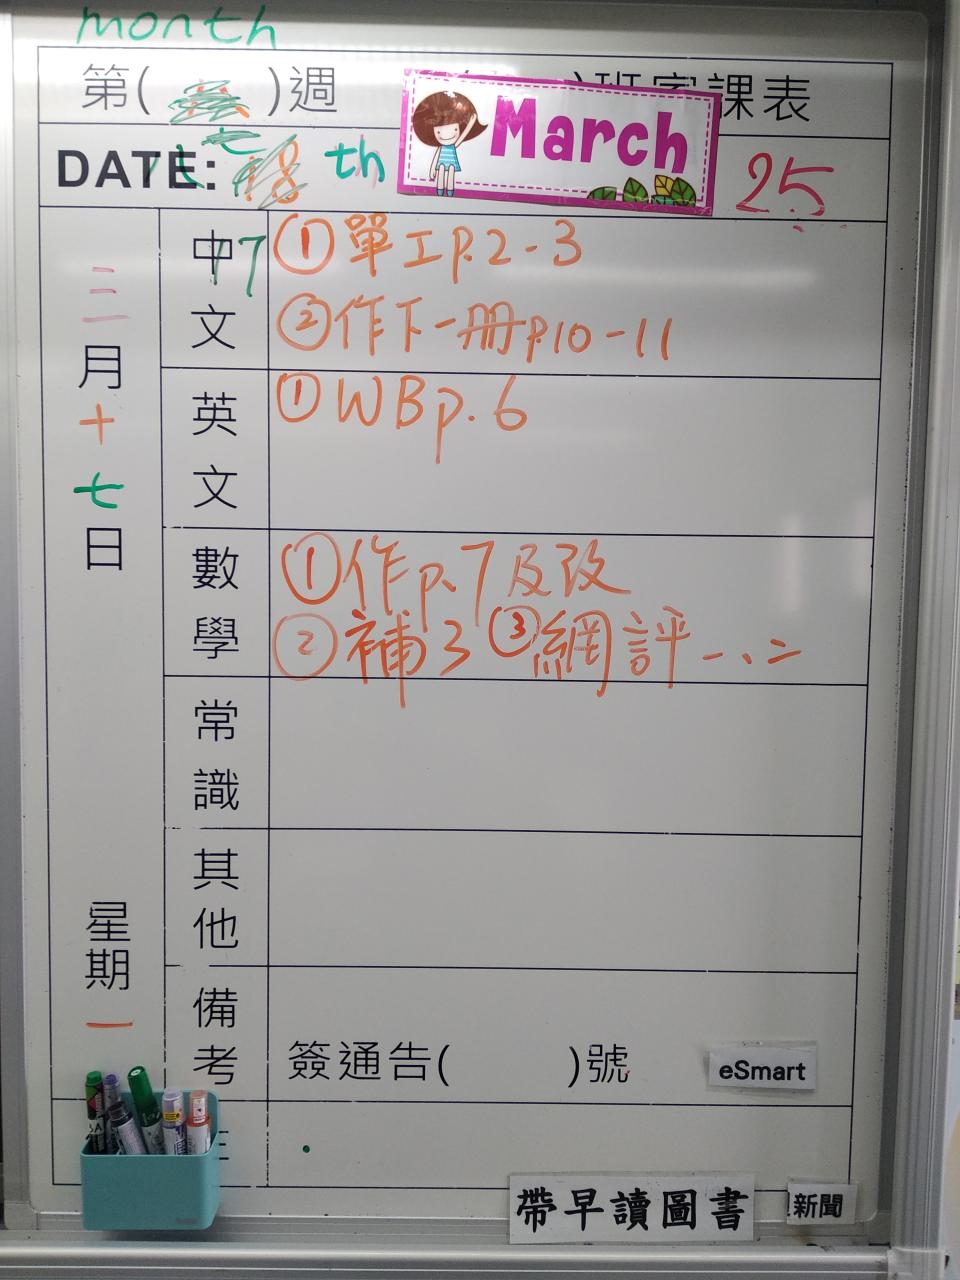 month
第( )週 課表
DATE: 18 th March 25
17
三月十七日
星期一
中文
①單工p.2-3
②作下一冊p.10-11
英文
①WBp.6
數學
①作p.7及改
②補3 ③網評一、二
常識
其他
備考
簽通告( )號
eSmart
帶早讀圖書
新聞